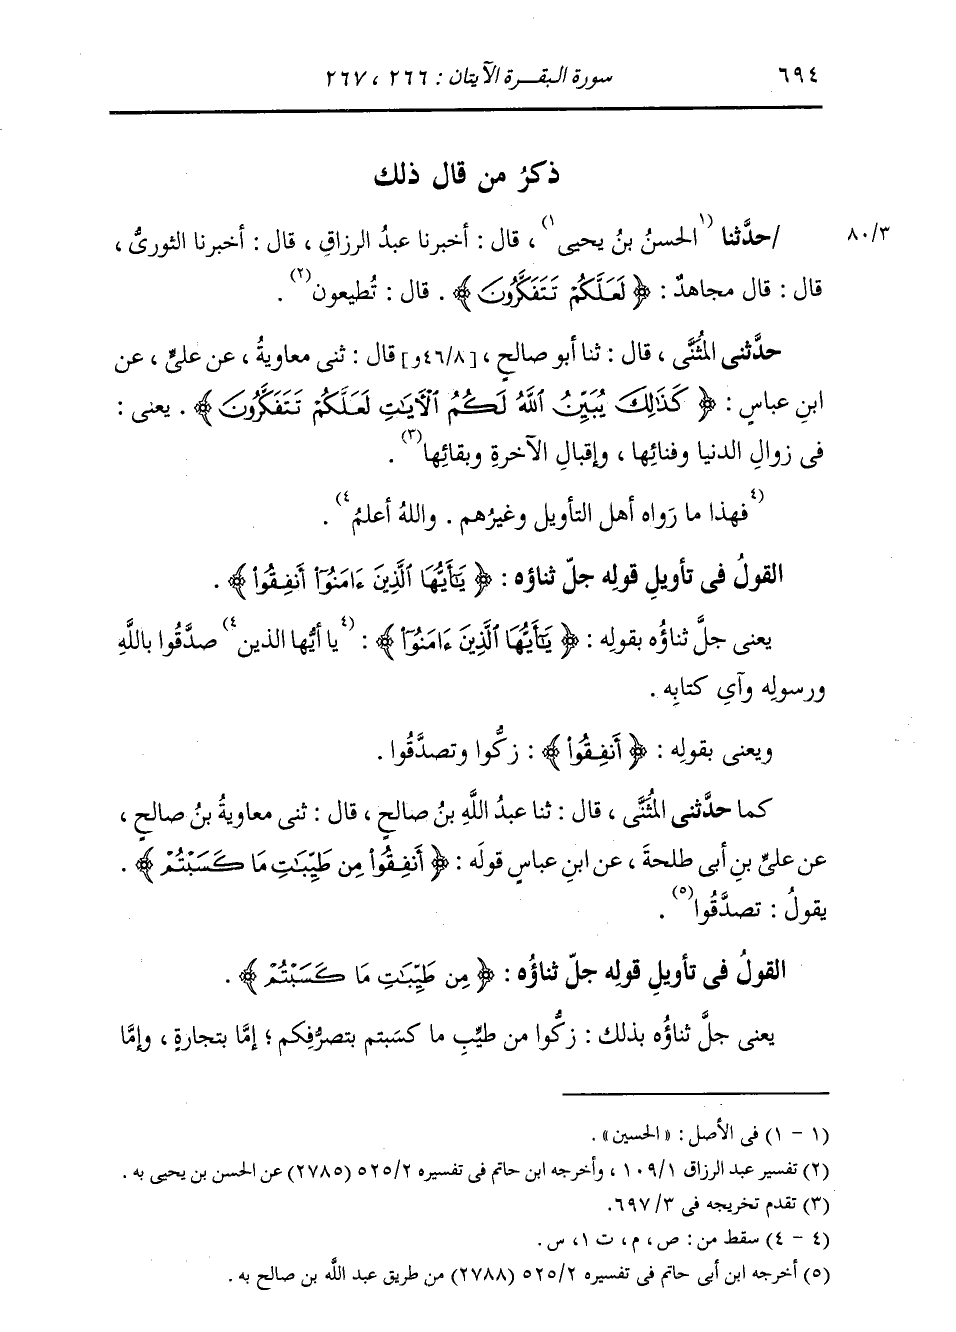 ٦٩٤ سورة البقـرة الآيتان : ٢٦٦ ، ٢٦٧
ذكرُ من قال ذلك
٨٠/٣ /حدَّثنا (١ الحسنُ بنُ يحيى ١) ، قال : أخبرنا عبدُ الرزاقِ ، قال : أخبرنا الثورىُّ ،
قال : قال مجاهدٌ : ﴿ لَعَلَّكُمْ تَتَفَكَّرُونَ ﴾ . قال : تُطيعون (٢) .
حدَّثنى المُثَنَّى ، قال : ثنا أبو صالحٍ ، [٤٦/٨و] قال : ثنى معاويةُ ، عن علىٍّ ، عن
ابنِ عباسٍ : ﴿ كَذَٰلِكَ يُبَيِّنُ ٱللَّهُ لَكُمُ ٱلْآيَٰتِ لَعَلَّكُمْ تَتَفَكَّرُونَ ﴾ . يعنى :
فى زوالِ الدنيا وفنائِها ، وإقبالِ الآخرةِ وبقائِها (٣) .
(٤ فهذا ما رَواه أهل التأويل وغيرُهم . واللهُ أعلمُ ٤) .
القولُ فى تأويلِ قولِه جلّ ثناؤه : ﴿ يَٰٓأَيُّهَا ٱلَّذِينَ ءَامَنُوٓا۟ أَنفِقُوا۟ ﴾ .
يعنى جلَّ ثناؤُه بقولِه : ﴿ يَٰٓأَيُّهَا ٱلَّذِينَ ءَامَنُوٓا۟ ﴾ : (٤ يا أيُّها الذين ٤) صدَّقُوا باللَّهِ
ورسولِه وآيِ كتابِه .
ويعنى بقولِه : ﴿ أَنفِقُوا۟ ﴾ : زكُّوا وتصدَّقُوا .
كما حدَّثنى المُثَنَّى ، قال : ثنا عبدُ اللَّهِ بنُ صالحٍ ، قال : ثنى معاويةُ بنُ صالحٍ ،
عن علىِّ بنِ أبى طلحةَ ، عن ابنِ عباسٍ قولَه : ﴿ أَنفِقُوا۟ مِن طَيِّبَٰتِ مَا كَسَبْتُمْ ﴾ .
يقولُ : تصدَّقُوا (٥) .
القولُ فى تأويلِ قولِه جلّ ثناؤُه : ﴿ مِن طَيِّبَٰتِ مَا كَسَبْتُمْ ﴾ .
يعنى جلَّ ثناؤُه بذلك : زكُّوا من طيِّبِ ما كسَبتم بتصرُّفِكم ؛ إمَّا بتجارةٍ ، وإمَّا
(١ - ١) فى الأصل : «الحسين» .
(٢) تفسير عبد الرزاق ١٠٩/١ ، وأخرجه ابن حاتم فى تفسيره ٥٢٥/٢ (٢٧٨٥) عن الحسن بن يحيى به .
(٣) تقدم تخريجه فى ٦٩٧/٣.
(٤ - ٤) سقط من : ص ، م ، ت ١، س .
(٥) أخرجه ابن أبى حاتم فى تفسيره ٥٢٥/٢ (٢٧٨٨) من طريق عبد اللَّه بن صالح به .